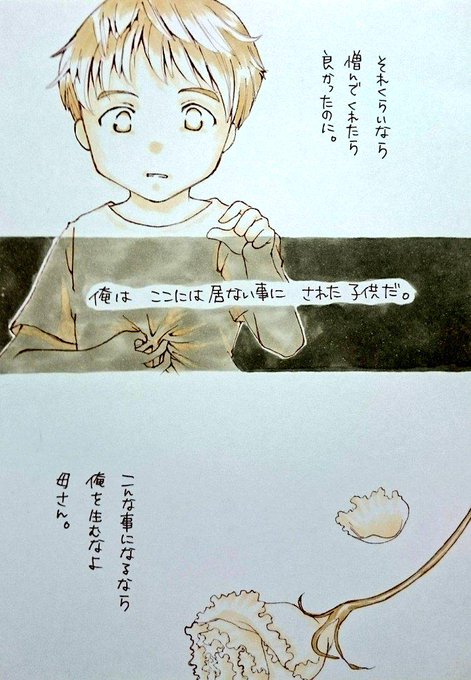 それくらいなら
憎んでくれたら
良かったのに。
俺は ここには居ない事に された子供だ。
こんな事になるなら
俺を生むなよ
母さん。